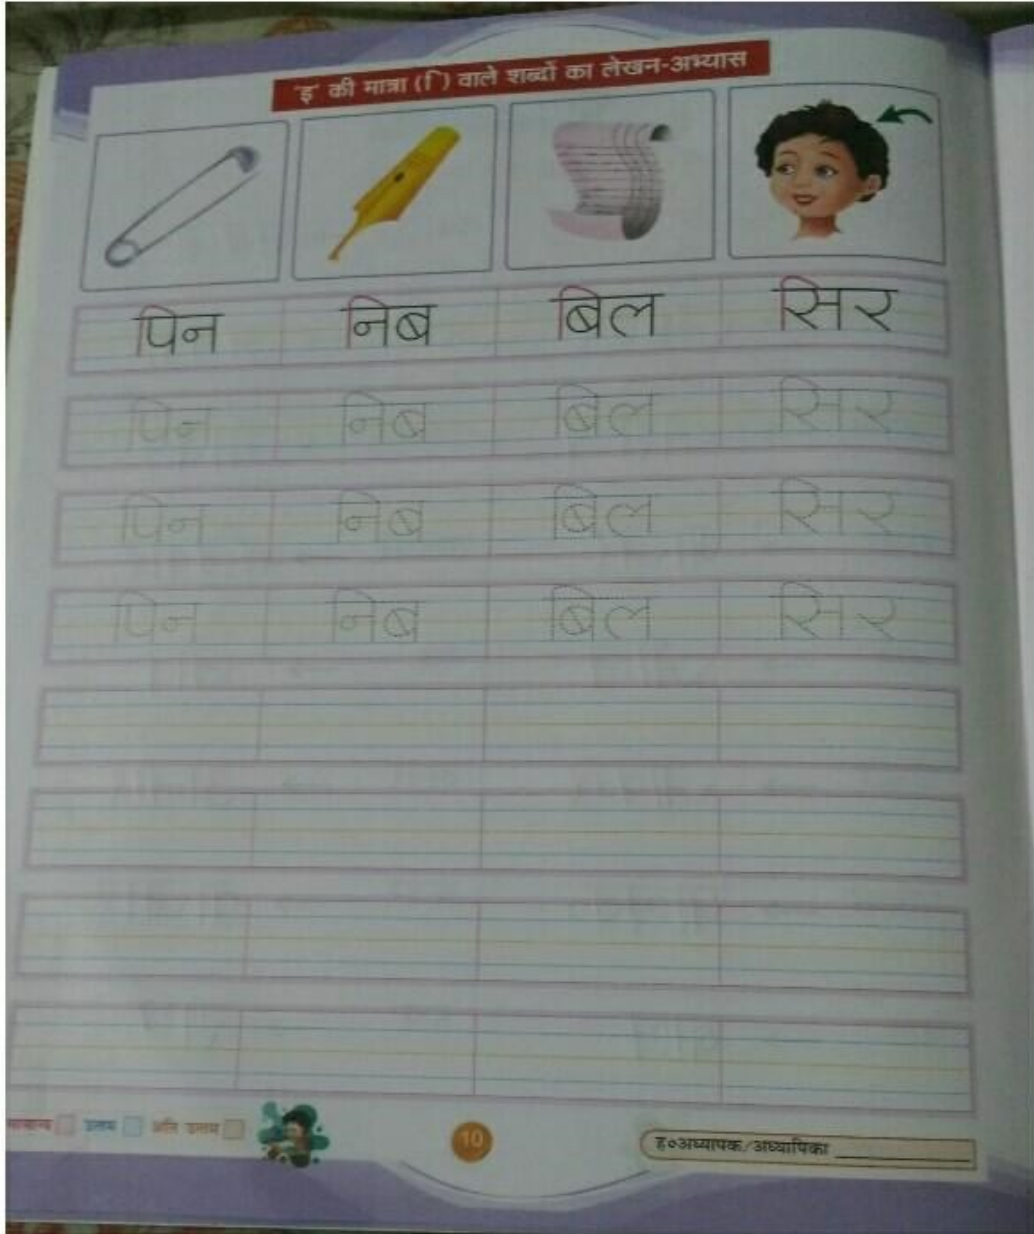 'इ' की मात्रा (ि) वाले शब्दों का लेखन-अभ्यास
पिन निब बिल सिर
पिन निब बिल सिर
पिन निब बिल सिर
पिन निब बिल सिर
सामान्य उत्तम अति उत्तम
10
ह०अध्यापक/अध्यापिका